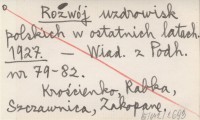 Rozwój uzdrowisk
polskich w ostatnich latach.
1927. — Wiad. z Podh.
nr 79-82.
Krościenko, Rabka,
Szczawnica, Zakopane.